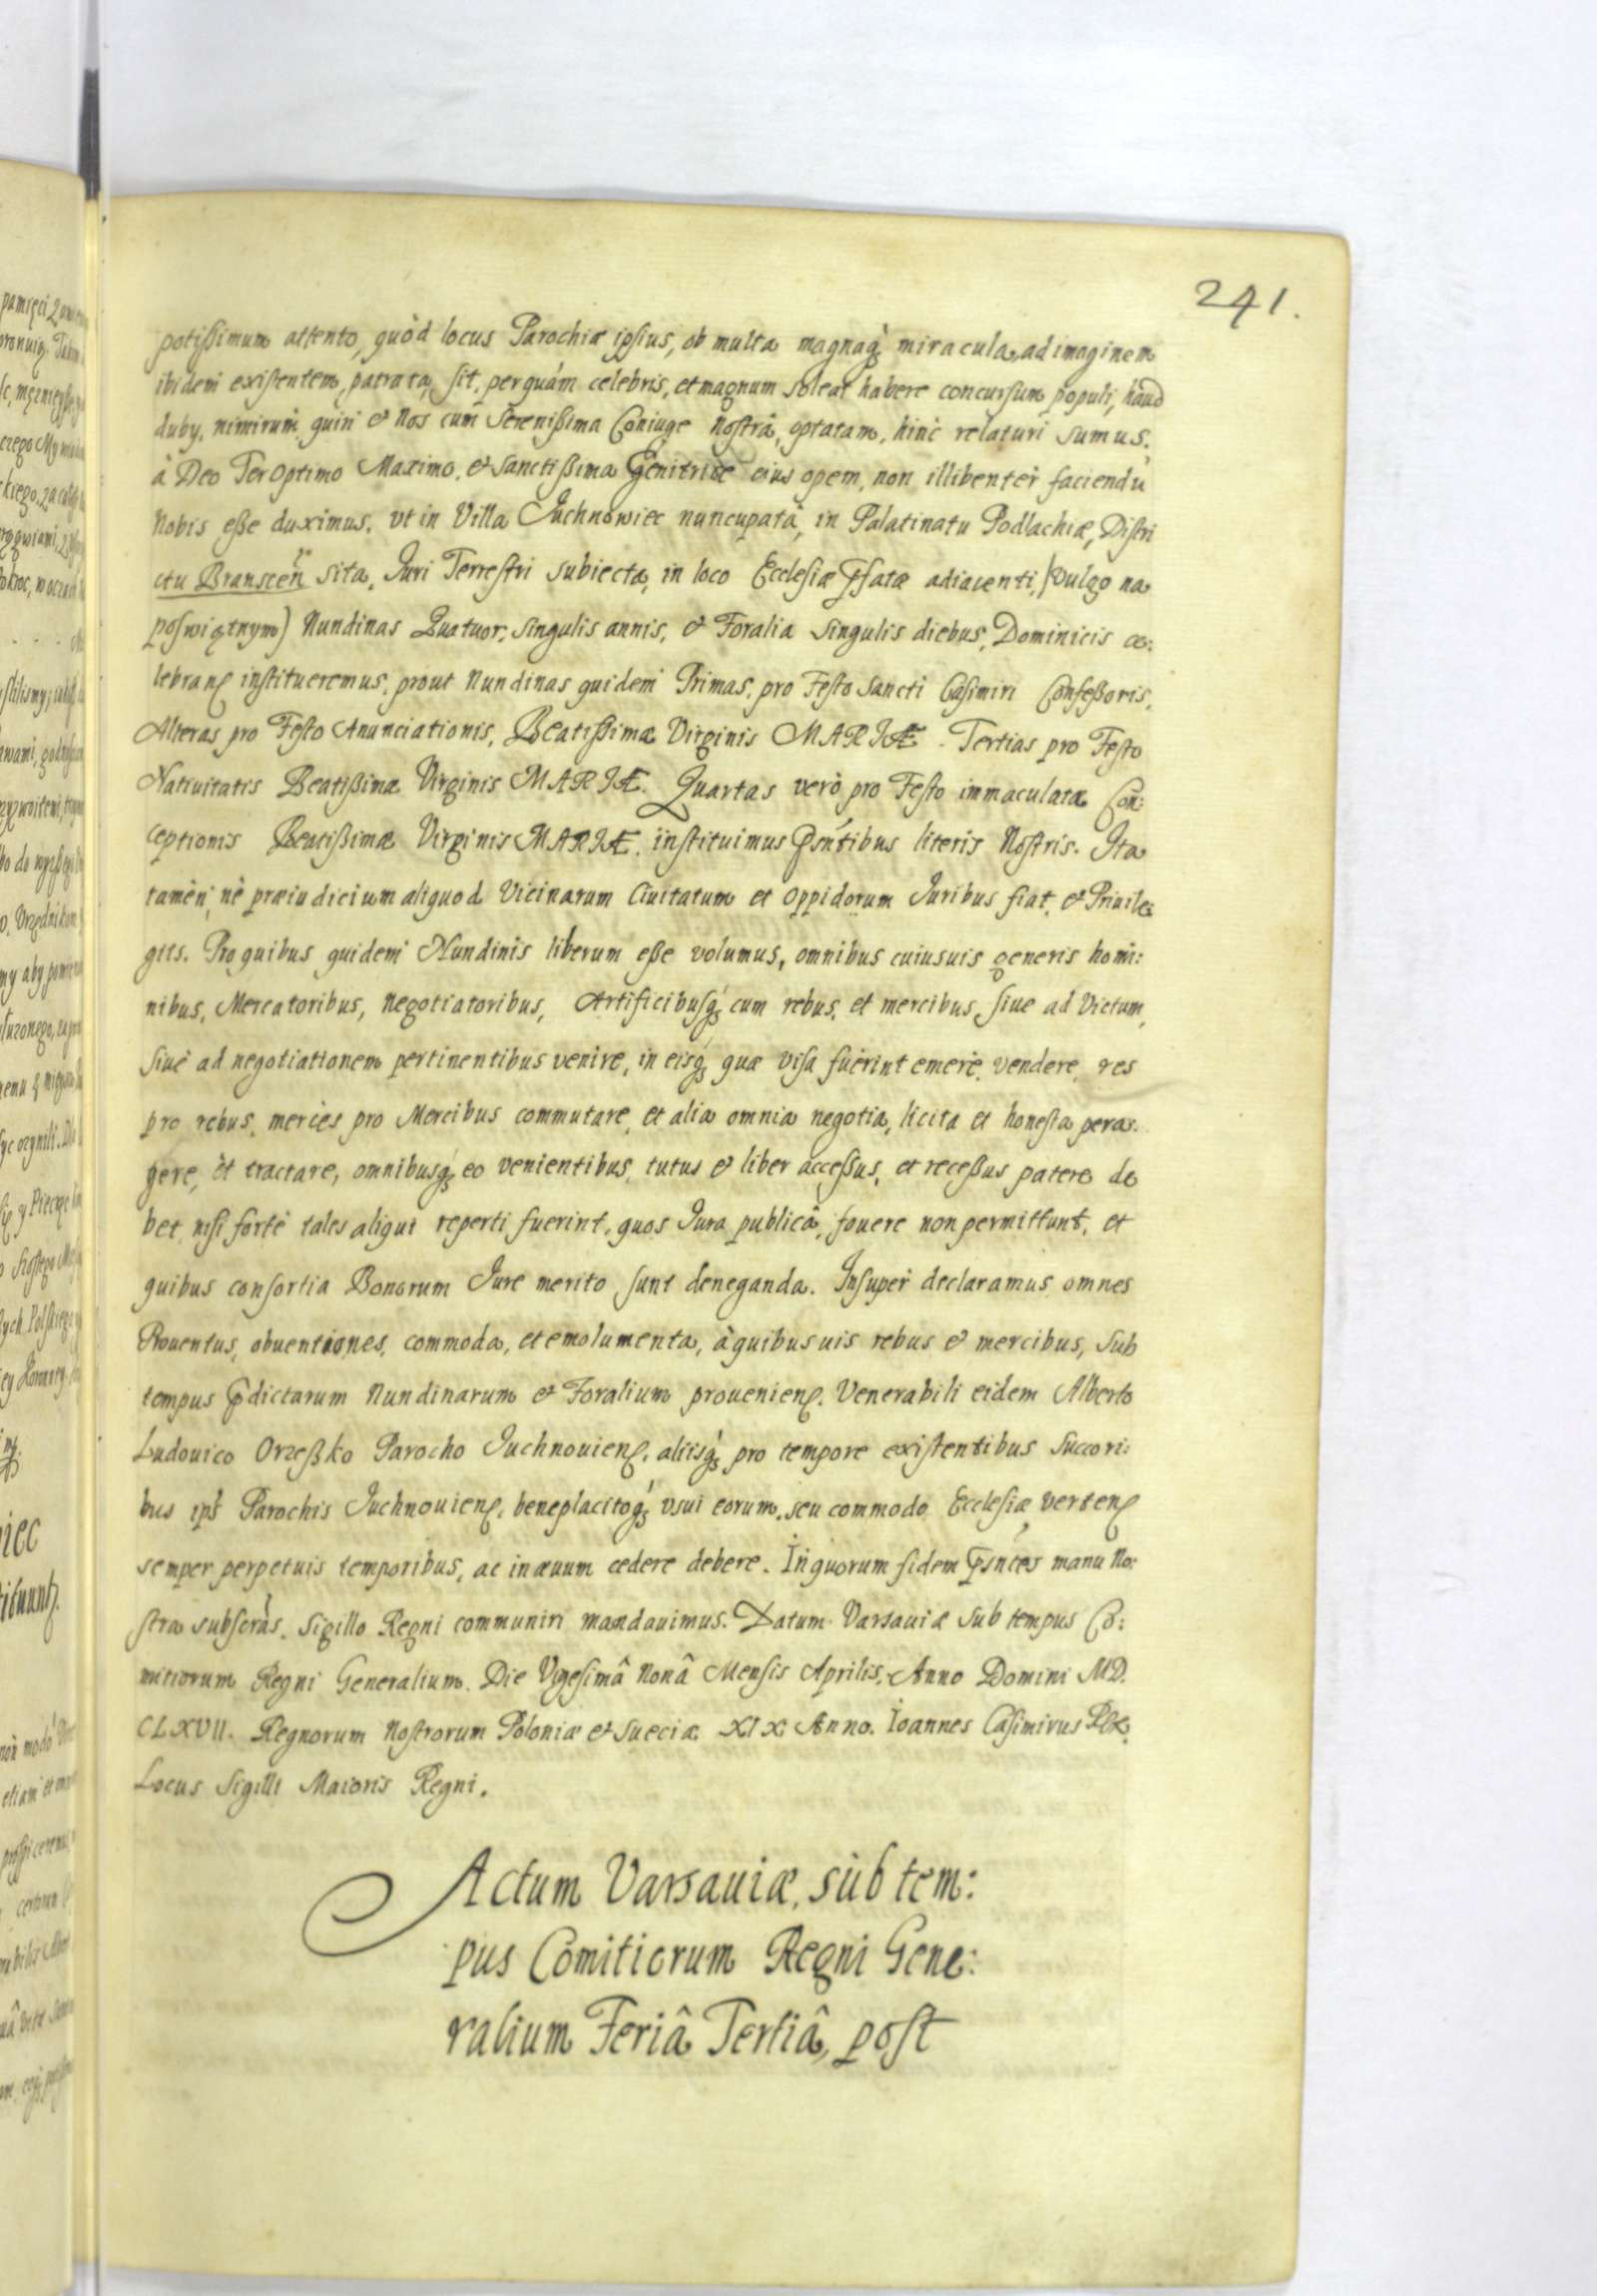 241.
potissimum attento, quòd locus Parochiæ ipsius, ob multa magnaq; miracula, ad imaginem
ibidem existentem, patrata, sit, perquám celebris, et magnum soleat habere concursum populi, haud
duby, nimirum quin & Nos cum Serenissima Coniuge Nostrâ, optatam, hinc relaturi sumus,
à Deo Ter Optimo Maximo, & Sanctissima Genitrice eius opem, non illibenter faciendũ
Nobis esse duximus, vt in Villa Juchnowiec nuncupatâ, in Palatinatu Podlachiæ, Distri
ctu Branscen̄ sita, Juri Terrestri subiecta, in loco Ecclesiæ p̱fatæ adiacenti, (vulgo na
poswiętnym) Nundinas Quatuor, singulis annis, & Foralia singulis diebus, Dominicis ce:
lebran̄ institueremus, prout Nundinas quidem Primas, pro Festo Sancti Casimiri Confessoris,
Alteras pro Festo Anunciationis, Beatissimæ Virginis MARIÆ. Tertias pro Festo
Natiuitatis Beatissimæ Virginis MARIÆ. Quartas verò pro Festo immaculatæ Con:
ceptionis Beatissimæ Virginis MARIÆ, instituimus p̱sentibus literis Nostris. Ita
tamèn, nè præiudicium aliquod Vicinarum Ciuitatum et Oppidorum Juribus fiat, & Priuile:
giis. Pro quibus quidem Nundinis liberum esse volumus, omnibus cuiusuis generis homi:
nibus, Mercatoribus, Negotiatoribus, Artificibusq; cum rebus, et mercibus, siue ad Victum,
siue ad negotiationem pertinentibus venire, in eisq; quæ visa fuerint emere, vendere, res
pro rebus, merces pro Mercibus commutare, et alia omnia negotia, licita et honesta pera:
gere, et tractare, omnibusq; eo venientibus, tutus & liber accessus, et recessus patere de
bet, nisi fortè tales aliqui reperti fuerint, quos Jura publicâ, fouere non permittunt, et
quibus consortia Bonorum Jure merito sunt deneganda. Insuper declaramus omnes
Prouentus, obuentiones, commoda, et emolumenta, à quibusuis rebus & mercibus, sub
tempus p̱dictarum Nundinarum & Foralium prouenien̄. Venerabili eidem Alberto
Ludouico Orzeszko Parocho Juchnouien̄, aliisq; pro tempore existentibus Succori:
bus ips̄ Parochis Juchnouien̄, beneplacitoq; vsui eorum, seu commodo Ecclesiæ verten̄
semper perpetuis temporibus, ac in æuum cedere debere. In quorum fidem p̱sntes manu No:
stra subscrãs, Sigillo Regni communiri mandauimus. Datum Varsauiæ sub tempus Co:
mitiorum Regni Generalium. Die Vigesimâ Nonâ Mensis Aprilis, Anno Domini MD.
CLXVII. Regnorum Nostrorum Poloniæ & Sueciæ XIX Anno. Ioannes Casimirus Rex.
Locus Sigilli Maioris Regni.
Actum Varsauiæ, sub tem:
pus Comitiorum Regni Gene:
ralium Feriâ Tertiâ, post